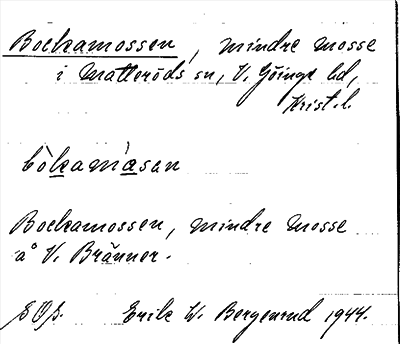 Bockamossen, mindre mosse
i Matteröds sn, V. Göinge hd,
Krist. l.
bò̀kam'asen
Bockamossen, mindre mosse
å V. Bränner.
Erik W. Bergenrud 1944.